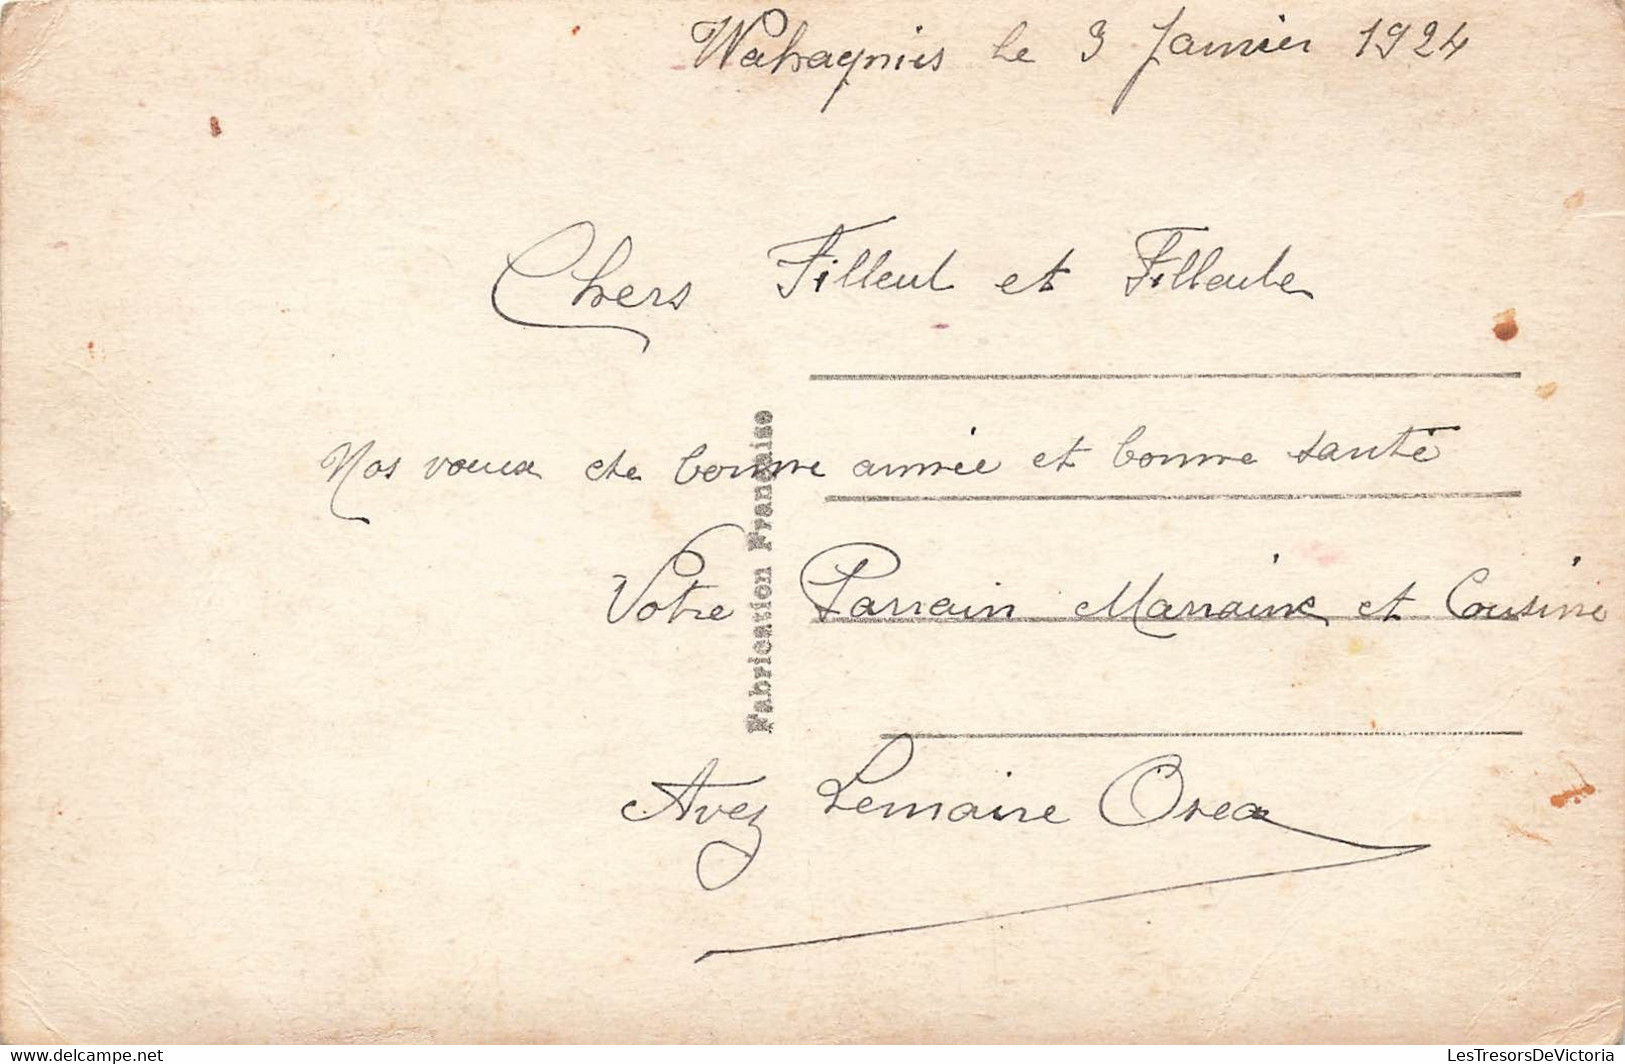 Wahagnies le 3 Janvier 1924
Chers Filleul et Filleule
Nos voeux de bonne année et bonne santé
Votre Parrain Marraine et Cousine
Avez Lemaire Osea
Fabrication Française
LesTresorsDeVictoria
delcampe.net